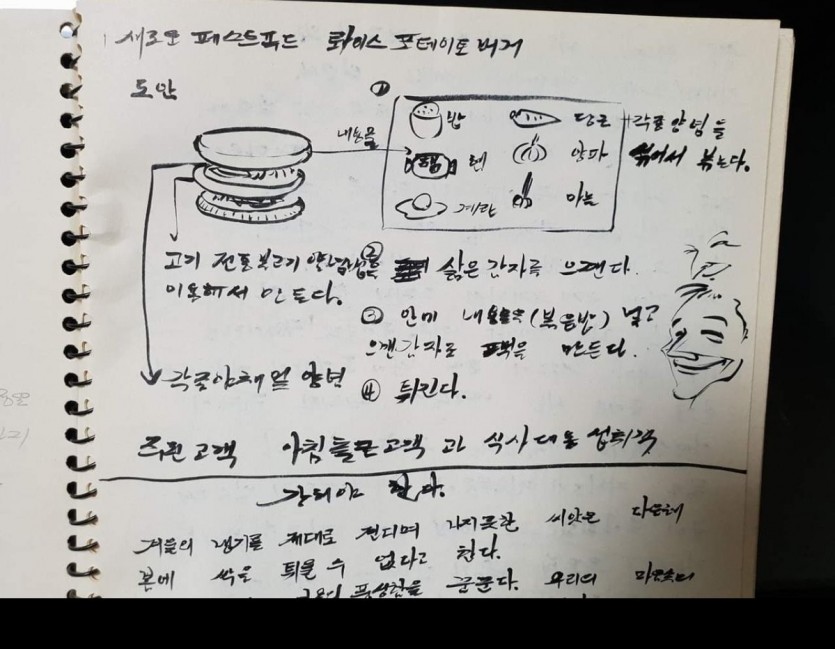 새로운 패스트푸드 롸이스 포테이토 버거
도안
①
내용물
밥 당근 +각종 양념을
햄
햄 양파 섞어서 볶는다.
계란 마늘
고기 전통 불고기 양념을
이용해서 만든다.
② 삶은 감자를 으깬다.
③ 안에 내용물(볶음밥) 넣고
으깬감자로 만든다.
④ 튀긴다.
각종야채 및 양념
주된 고객 아침 굶은 고객 과 식사대용 섭취객
견뎌야 한다.
겨울의 냉기를 제대로 견디며 나지못한 씨앗은 다음해
봄에 싹을 틔울 수 없다고 한다.
풍성함을 꿈꾼다. 우리의